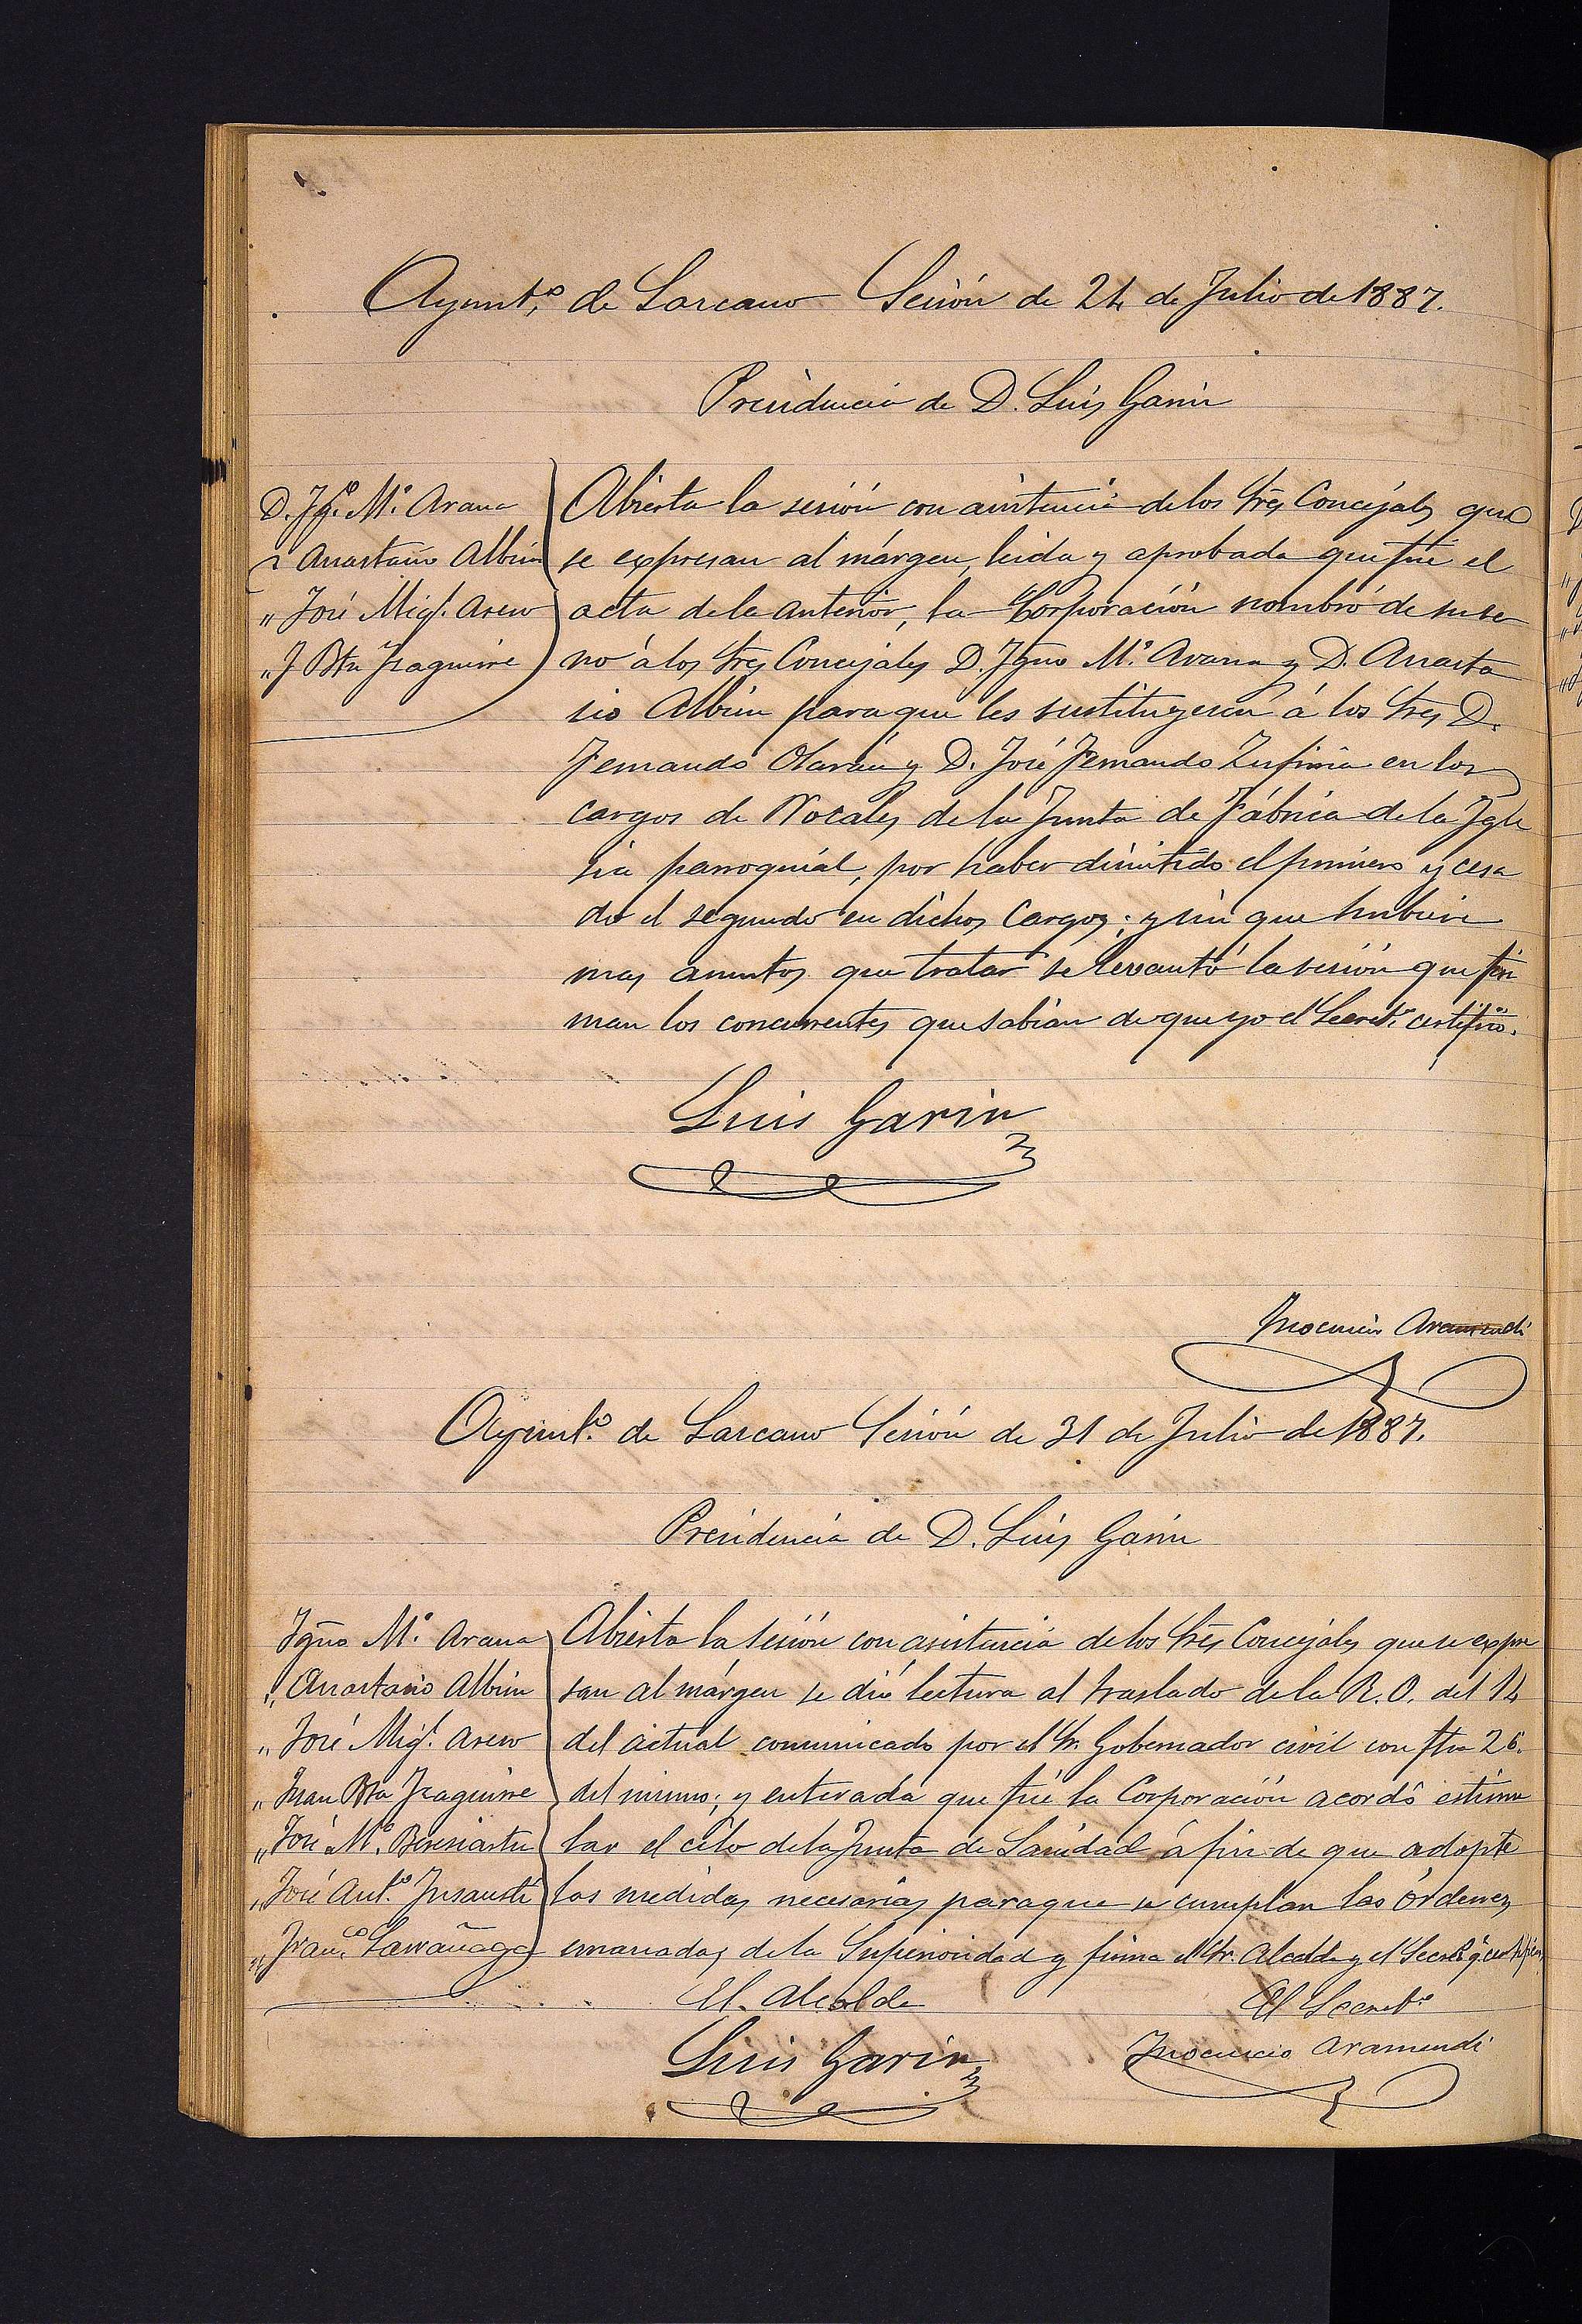 Ayunt.º de Lazcano Sesión de 24 de Julio de 1887.
Presidencia de D. Luis Garin
D. Ygº. Mª. Arana
" Anastasio Albisu
" José Migl. Aseno
" J Bta Yzaguirre
Abierta la sesión con asistencia de los Sres Concejales que
se expresan al márgen, leida y aprobada que fué el
acta de la anterior, la Corporación nombró de su se
no á los Sres Concejales D. Ygno Mª. Arana y D. Anasta
sio Albisu para que les sustituyesen á los Sres D.
Fernando Olarán y D. José Fernando Zufiria en los
cargos de Vocales de la Junta de Fábrica de la Ygle
sia parroquial, por haber dimitido el primero y cesa
do el segundo en dichos cargos; y sin que hubiere
mas asuntos que tratar se levantó la sesión que fir
man los concurrentes que sabian de que yo el Secretº. certifico.
Luis Garin
Inocencio Aramendi
Ayunt.º de Lazcano Sesión de 31 de Julio de 1887.
Presidencia de D. Luis Garin
Ygno Mª. Arana
" Anastasio Albisu
" José Migl. Aseno
" Juan Bta Yzaguirre
" José Mª. Beresiartu
" José Antº. Insausti
" Francº. Larrañaga
Abierta la sesión con asistencia de los Sres Concejales que se expre
san al márgen se dió lectura al traslado de la R. O. del 14
del actual comunicado por el Sr. Gobernador civil con fha 26.
del mismo; y enterada que fué la Corporación acordó estimu
lar el celo de la Junta de Sanidad á fin de que adopte
las medidas necesarias para que se cumplan las órdenes
emanadas de la Superioridad y firma el Sr. Alcalde y el Secretº q. certifica
El Alcalde
El Secretº
Luis Garin
Inocencio Aramendi